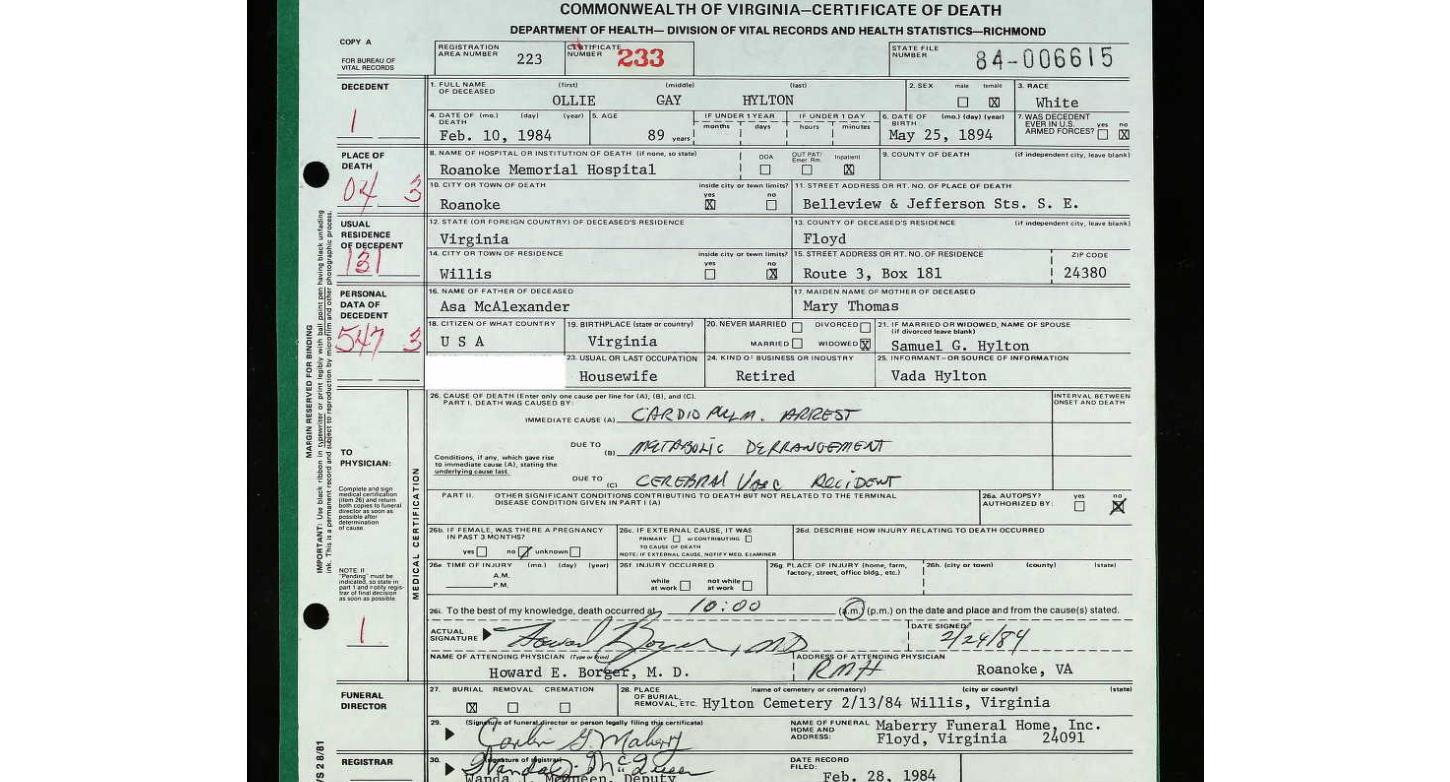 COMMONWEALTH OF VIRGINIA—CERTIFICATE OF DEATH
DEPARTMENT OF HEALTH— DIVISION OF VITAL RECORDS AND HEALTH STATISTICS—RICHMOND
COPY A
FOR BUREAU OF VITAL RECORDS
REGISTRATION AREA NUMBER 223
CERTIFICATE NUMBER 233
STATE FILE NUMBER 84-006615
DECEDENT
1
1. FULL NAME OF DECEASED (first) (middle) (last)
OLLIE GAY HYLTON
2. SEX male female X
3. RACE White
4. DATE OF DEATH (mo.) (day) (year)
Feb. 10, 1984
5. AGE 89 years
IF UNDER 1 YEAR months days
IF UNDER 1 DAY hours minutes
6. DATE OF BIRTH (mo.) (day) (year)
May 25, 1894
7. WAS DECEDENT EVER IN U.S. ARMED FORCES? yes no X
PLACE OF DEATH
04 3
8. NAME OF HOSPITAL OR INSTITUTION OF DEATH (if none, so state)
Roanoke Memorial Hospital
DOA OUT PAT/ Emer Rm. Inpatient X
9. COUNTY OF DEATH (if independent city, leave blank)
10. CITY OR TOWN OF DEATH
Roanoke
inside city or town limits? yes X no
11. STREET ADDRESS OR RT. NO. OF PLACE OF DEATH
Belleview & Jefferson Sts. S. E.
USUAL RESIDENCE OF DECEDENT
131
12. STATE (OR FOREIGN COUNTRY) OF DECEASED'S RESIDENCE
Virginia
13. COUNTY OF DECEASED'S RESIDENCE (if independent city, leave blank)
Floyd
14. CITY OR TOWN OF RESIDENCE
Willis
inside city or town limits? yes no X
15. STREET ADDRESS OR RT. NO. OF RESIDENCE
Route 3, Box 181
ZIP CODE
24380
PERSONAL DATA OF DECEDENT
547 3
16. NAME OF FATHER OF DECEASED
Asa McAlexander
17. MAIDEN NAME OF MOTHER OF DECEASED
Mary Thomas
18. CITIZEN OF WHAT COUNTRY
U S A
19. BIRTHPLACE (state or country)
Virginia
20. NEVER MARRIED DIVORCED
MARRIED WIDOWED X
21. IF MARRIED OR WIDOWED, NAME OF SPOUSE (if divorced leave blank)
Samuel G. Hylton
23. USUAL OR LAST OCCUPATION
Housewife
24. KIND OF BUSINESS OR INDUSTRY
Retired
25. INFORMANT—OR SOURCE OF INFORMATION
Vada Hylton
MARGIN RESERVED FOR BINDING
IMPORTANT: Use black ribbon in typewriter or print legibly with ball point pen having black unfading
ink. This is a permanent record and subject to reproduction by microfilm and other photographic process.
TO PHYSICIAN:
Complete and sign medical certification (item 26) and return both copies to funeral director as soon as possible after determination of cause.
NOTE: If "Pending" must be indicated, so state in part 1 and notify registrar of final decision as soon as possible.
1
MEDICAL CERTIFICATION
26. CAUSE OF DEATH (Enter only one cause per line for (A), (B), and (C).
PART I. DEATH WAS CAUSED BY:
INTERVAL BETWEEN ONSET AND DEATH
IMMEDIATE CAUSE (A) CARDIO PULM. ARREST
Conditions, if any, which gave rise to immediate cause (A), stating the underlying cause last.
DUE TO (B) METABOLIC DERRANGEMENT
DUE TO (C) CEREBRAL VASC ACCIDENT
PART II. OTHER SIGNIFICANT CONDITIONS CONTRIBUTING TO DEATH BUT NOT RELATED TO THE TERMINAL DISEASE CONDITION GIVEN IN PART I (A)
26a. AUTOPSY? AUTHORIZED BY: yes no X
26b. IF FEMALE, WAS THERE A PREGNANCY IN PAST 3 MONTHS?
yes no unknown
26c. IF EXTERNAL CAUSE, IT WAS
PRIMARY or CONTRIBUTING
TO CAUSE OF DEATH
NOTE: IF EXTERNAL CAUSE, NOTIFY MED. EXAMINER
26d. DESCRIBE HOW INJURY RELATING TO DEATH OCCURRED
26e. TIME OF INJURY (mo.) (day) (year)
A.M.
P.M.
26f INJURY OCCURRED
while at work not while at work
26g. PLACE OF INJURY (home, farm, factory, street, office bldg., etc.)
26h. (city or town) (county) (state)
26i. To the best of my knowledge, death occurred at 10:00 (a.m.) (p.m.) on the date and place and from the cause(s) stated.
ACTUAL SIGNATURE Howard Borger, MD
DATE SIGNED 2/24/84
NAME OF ATTENDING PHYSICIAN (Type or Print)
Howard E. Borger, M. D.
ADDRESS OF ATTENDING PHYSICIAN
RMH Roanoke, VA
FUNERAL DIRECTOR
27. BURIAL REMOVAL CREMATION
X
28. PLACE OF BURIAL, REMOVAL, ETC. (name of cemetery or crematory) (city or county) (state)
Hylton Cemetery 2/13/84 Willis, Virginia
29. (Signature of funeral director or person legally filing this certificate)
G. Maberry
NAME OF FUNERAL HOME AND ADDRESS:
Maberry Funeral Home, Inc.
Floyd, Virginia 24091
REGISTRAR
VS 2 8/81
30. (Signature of registrar)
Wanda J. McQueen
Wanda J. McQueen, Deputy
DATE RECORD FILED:
Feb. 28, 1984